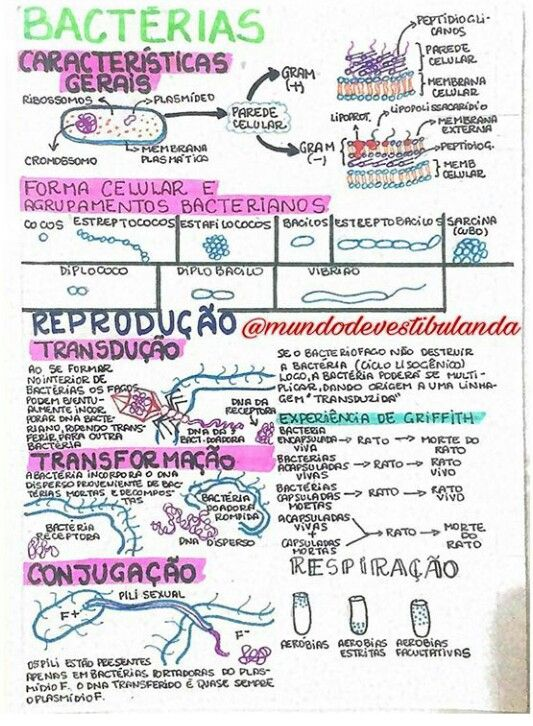 BACTÉRIAS
CARACTERÍSTICAS
GERAIS
RIBOSSOMOS
PLASMÍDEO
CROMOSSOMO
MEMBRANA
PLASMÁTICA
PAREDE
CELULAR
GRAM
(+)
PEPTÍDIOGLI-
CANOS
PAREDE
CELULAR
MEMBRANA
CELULAR
GRAM
(-)
LIPOPROT.
LIPOPOLISSACARÍDIO
MEMBRANA
EXTERNA
PEPTÍDIOG.
MEMB
CELULAR
FORMA CELULAR E
AGRUPAMENTOS BACTERIANOS
COCOS
ESTREPTOCOCOS
ESTAFILOCOCOS
BACILOS
ESTREPTOBACILOS
SARCINA
(CUBO)
DIPLOCOCO
DIPLOBACILO
VIBRIÃO
REPRODUÇÃO
@mundodevestibulanda
TRANSDUÇÃO
AO SE FORMAR
NO INTERIOR DE
BACTÉRIAS OS FAGOS
PODEM EVENTU-
ALMENTE INCOR
PORAR DNA BACTE-
RIANO, PODENDO TRANS-
FERIR PARA OUTRA
BACTÉRIA
DNA DA
RECEPTORA
DNA DA
BACT. DOADORA
SE O BACTERIOFAGO NÃO DESTRUIR
A BACTÉRIA (CICLO LISOGÊNICO)
LOGO, A BACTÉRIA PODERÁ SE MULTI-
PLICAR, DANDO ORIGEM A UMA LINHA-
GEM "TRANSDUZIDA"
EXPERIÊNCIA DE GRIFFITH
BACTÉRIA
ENCAPSULADA → RATO → MORTE DO
VIVA RATO
BACTÉRIAS
ACAPSULADAS → RATO → RATO
VIVAS VIVO
BACTÉRIAS
CAPSULADAS → RATO → RATO
MORTAS VIVO
ACAPSULADAS
VIVAS
+
CAPSULADAS
MORTAS
RATO → MORTE
DO
RATO
TRANSFORMAÇÃO
A BACTÉRIA INCORPORA O DNA
DISPERSO PROVENIENTE DE BAC-
TÉRIAS MORTAS E DECOMPOS-
TAS
BACTÉRIA
RECEPTORA
BACTÉRIA
DOADORA
ROMPIDA
DNA DISPERSO
CONJUGAÇÃO
PILI SEXUAL
F+
F-
OS PILI ESTÃO PRESENTES
APENAS EM BACTÉRIAS PORTADORAS DO PLAS-
MÍDIO F. O DNA TRANSFERIDO É QUASE SEMPRE
O PLASMÍDIO F.
RESPIRAÇÃO
AERÓBIAS
AERÓBIAS
ESTRITAS
AERÓBIAS
FACULTATIVAS